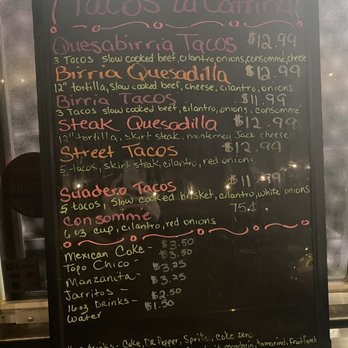 Tacos La Catrina
Quesabirria Tacos $12.99
3 Tacos slow cooked beef, cilantro onions, consommé, cheese
Birria Quesadilla $12.99
12" tortilla, slow cooked beef, cheese, cilantro, onions
Birria Tacos $11.99
3 Tacos slow cooked beef, cilantro, onions, cheese
Steak Quesadilla $12.99
12" tortilla, skirt steak, monterrey Jack cheese
Street Tacos $12.99
5 tacos, skirt steak, cilantro, red onions
Suadero Tacos $11.99
5 tacos, slow cooked brisket, cilantro, white onions
Consommé 75¢
6 oz cup, cilantro, red onions
Mexican Coke - $3.50
Topo Chico - $3.50
Manzanita - $3.25
Jarritos - $3.25
16oz Drinks - $2.50
Water $1.50
Drinks - Coke, Dr. Pepper, Sprite, Coke zero
mandarin, tamarind, fruit punch